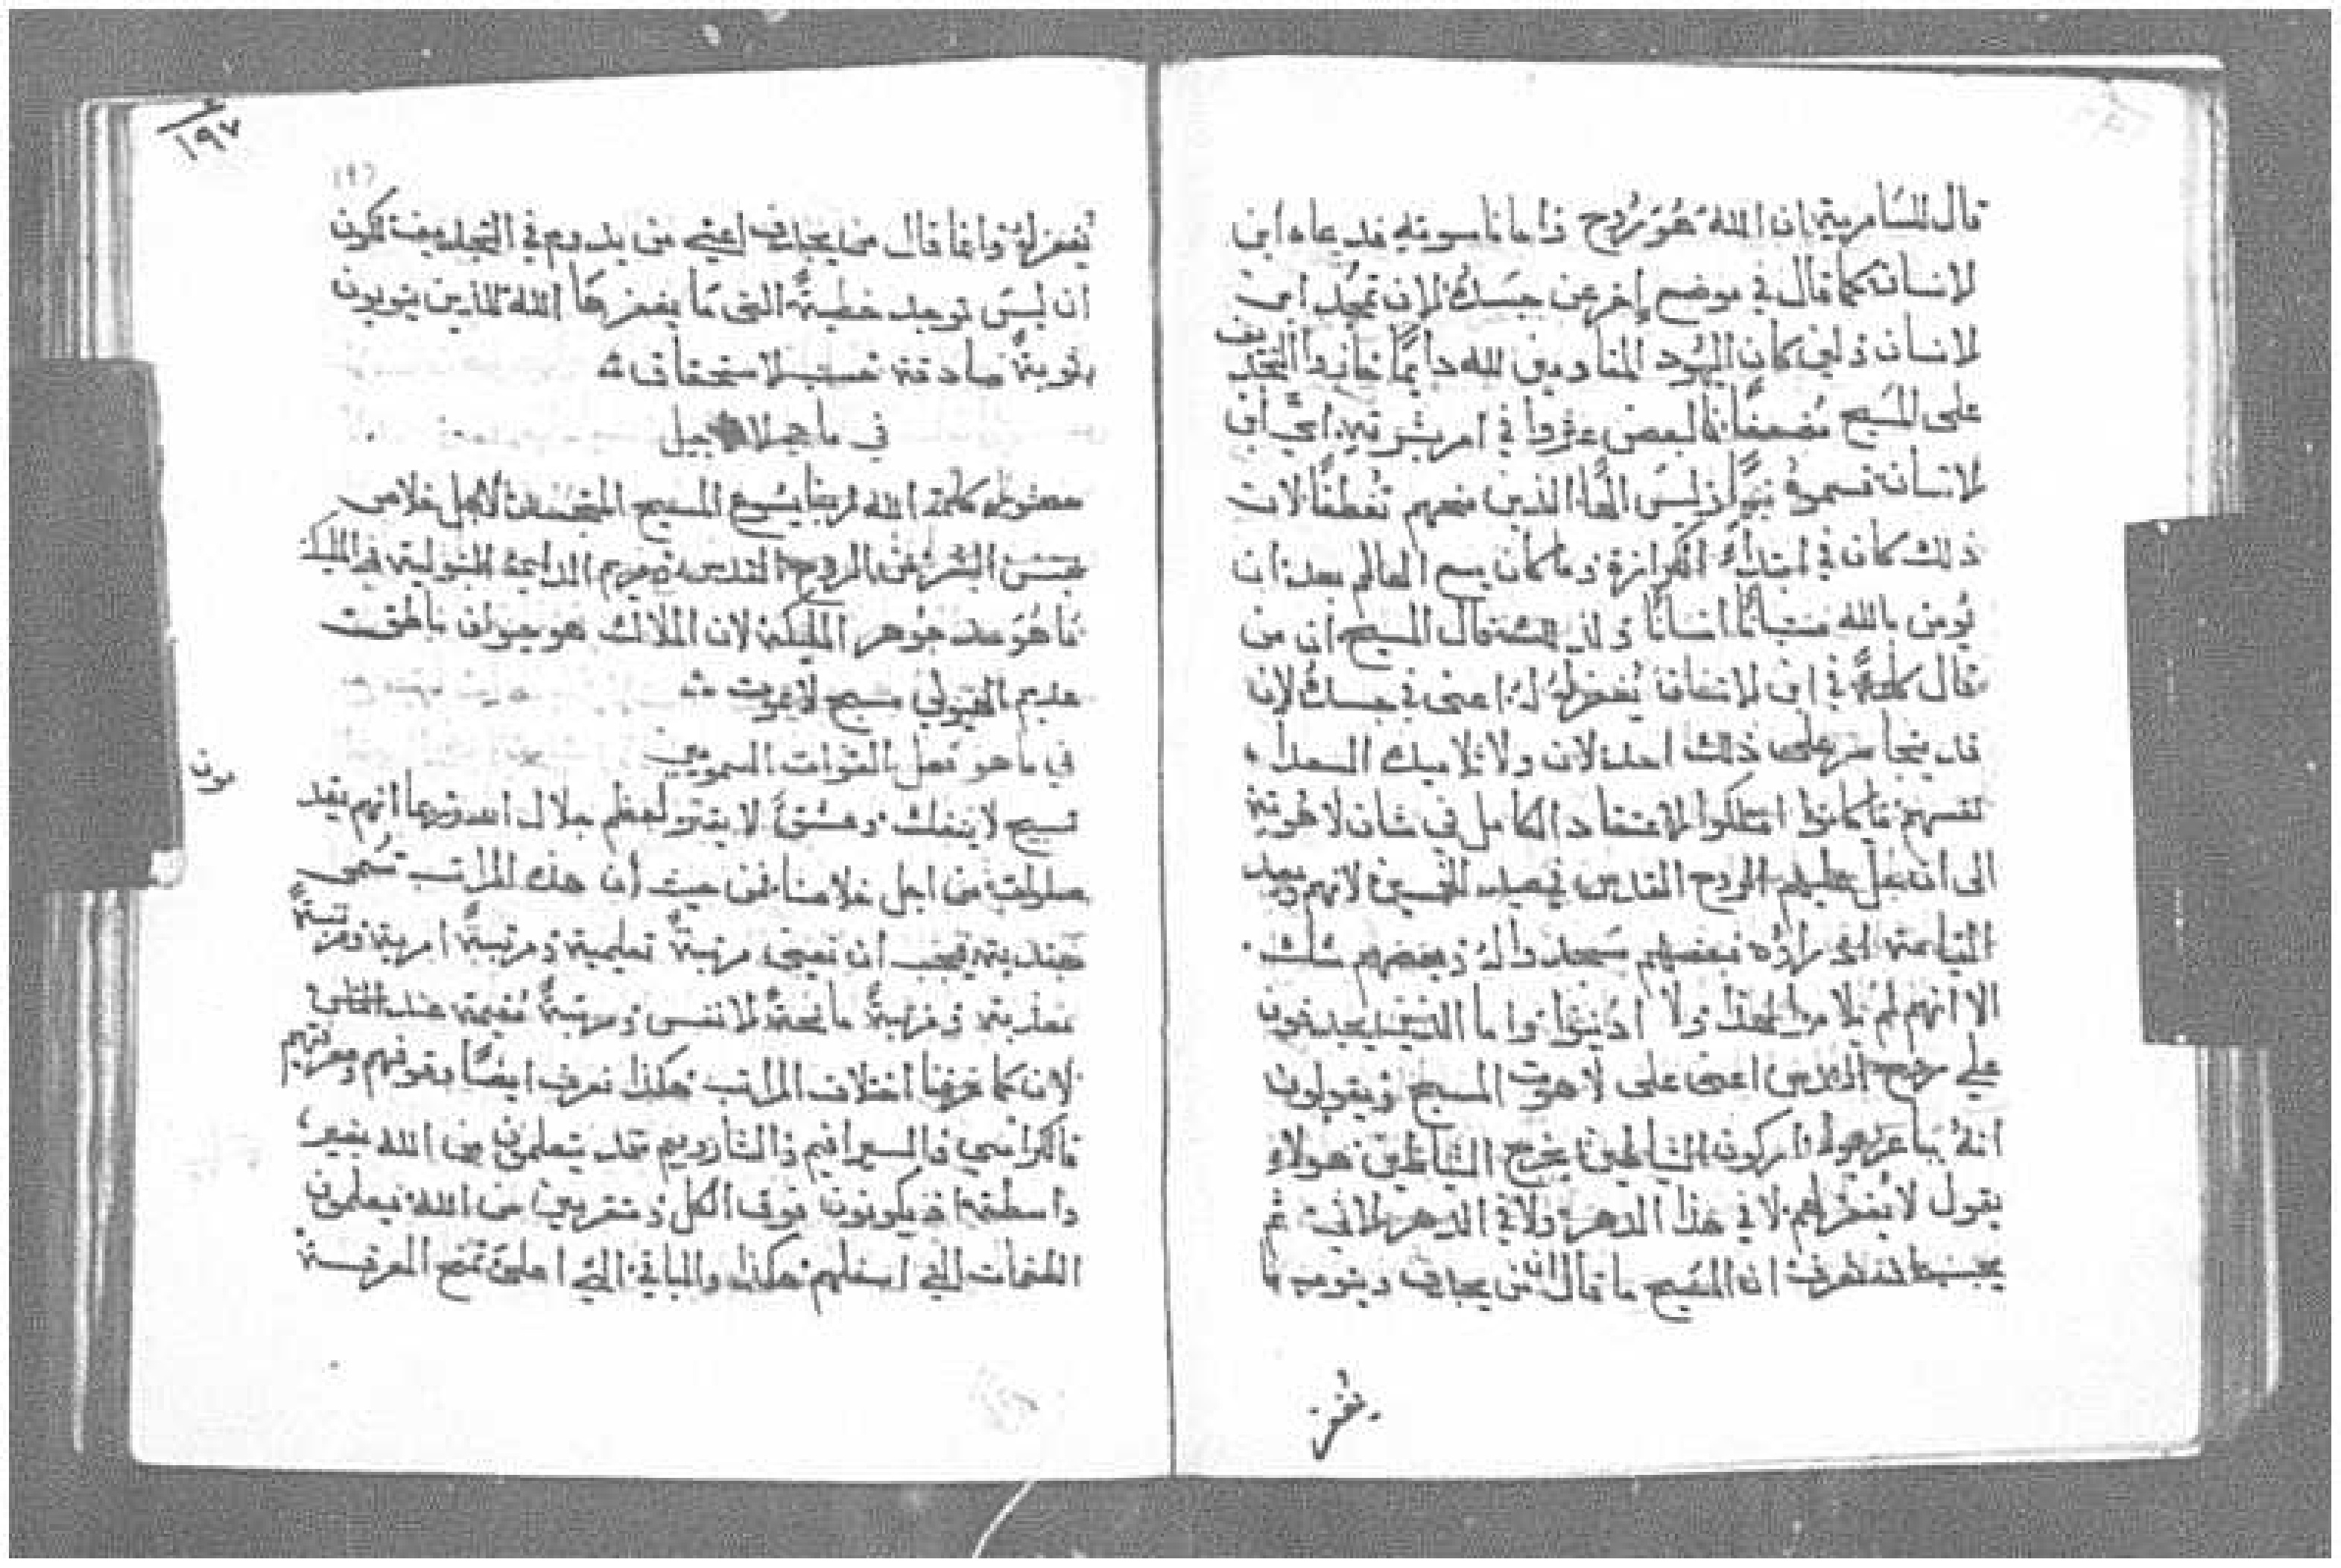 قال للسامرية ان الله هو روح واما ناسوته فدعاه ابن
الانسان كما قال في موضع اخر عن جسده الان تمجد ابن
الانسان ولين كان اليهود المقاومين لله دايمًا خانوا التجديف
على المسيح مضعفًا فالبعض عثروا في امر بشريته اي ابن
الانسان فسموه نبيًا وليس الهًا الذين منحهم تعطفًا لان
ذلك كان في ابتداء الكرازة وما كان يسع العالم بعد ان
يومن بالله متانسًا انسانًا ولذلك قال المسيح ان من
قال كلمة في ابن الانسان يُغفر له اعني في جسده لان
قد يتجاسر على ذلك احد لان ولا تلاميذه السعدا
نفسهم ما كانوا امتلكوا الاعتقاد الكامل في شان لاهوته
الى ان حل عليهم الروح القدس في عيد الخمسين لانهم وبعد
القيامة اذ راوه فبعضهم سجدوا له وبعضهم شك
الا انهم لم يلاموا لهذا ولا ادينوا واما الذين يجدفون
على روح القدس اعني على لاهوت المسيح ويقولون
انه بباعلزبول اركون الشياطين يخرج الشياطين هولاء
يقول لا يُغفر لهم لا في هذا الدهر ولا في الدهر الاتي ثم
فلنعرف ان المسيح ما قال ان من يجدف ويتوب ما
يُغفر
١٩٧
(٩)
يُغفر له وانما قال من يجدف اعني من يدوم في التجديف لكون
ان ليس توجد خطية التي ما يغفرها الله للذين يتوبون
بتوبةً صادقة حسب الاستحقاق
في ما هي الانجيل
حضور كلمة الله ربنا يسوع المسيح المتجسد لاجل خلاص
جنس البشر من الروح القدس ومريم الدايمة البتولية في الميلاد
ما هو حد جوهر المليكة لان الملاك هو حيوان ناطق
عديم الهيولي مسبح لا يموت
في ما هو فعل القوات السمويين
تسبيح لا ينفك وعشقٌ لا يفتر لعظم جلال الله وبما انهم يقدمون
صلوات من اجل خلاصنا فمن حيث ان هذه المراتب تُسمى
جندية فيجب ان نعرف مرتبةً تعليمية ومرتبةً امرية ومرتبةً
معذبة ومرتبةً مانحةً الانفس ومرتبةً مقيمة عند الناس
لان كما عرفنا اختلاف المراتب هكذا نعرف ايضًا وقوفهم ومعرفتهم
فالكراسي والسيرافيم والشاروبيم قد يتعلمون من الله بغير
واسطة اذ يكونون فوق الكل ومتقربين من الله فيعلمون
الطغمات التي اسفلهم هكذا والباقية التي اعلى تمنح المعرفة